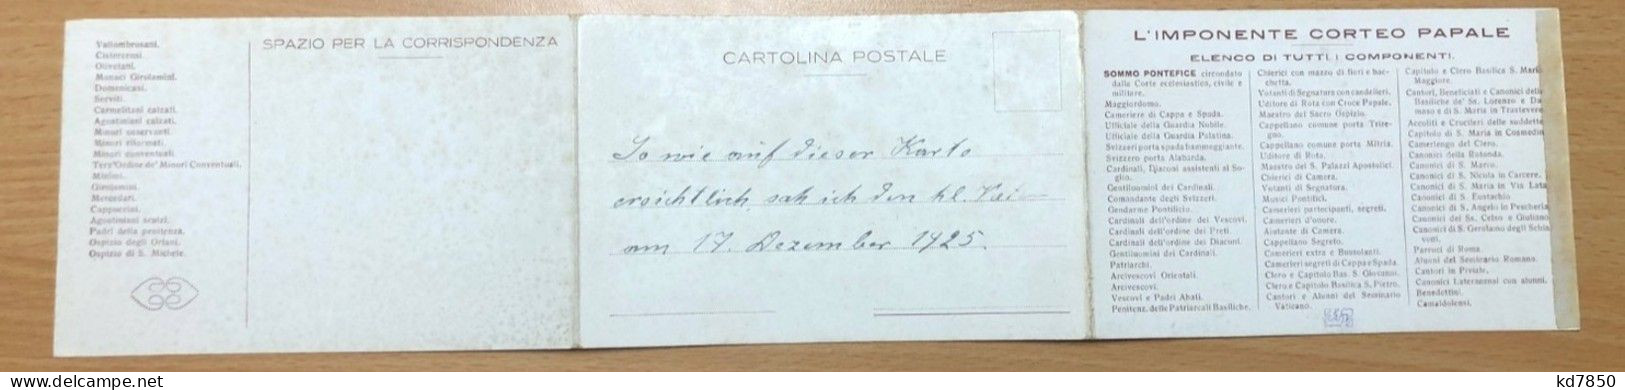 Vallombrosani.
Cistercensi.
Olivetani.
Monaci Girolamini.
Domenicani.
Serviti.
Carmelitani calzati.
Agostiniani calzati.
Minori osservanti.
Minori riformati.
Minori conventuali
Terz'Ordine de' Minori Conventuali.
Minimi.
Girolamini.
Mercedari.
Cappuccini.
Agostiniani scalzi.
Padri della penitenza.
Ospizio degli Orfani.
Ospizio di S. Michele.
SPAZIO PER LA CORRISPONDENZA
CARTOLINA POSTALE
So wie auf dieser Karte
ersichtlich, sah ich den hl.
am 17. Dezember 1925.
L'IMPONENTE CORTEO PAPALE
ELENCO DI TUTTI I COMPONENTI.
SOMMO PONTEFICE circondato
dalla Corte ecclesiastica, civile e
militare.
Maggiordomo.
Cameriere di Cappa e Spada.
Ufficiale della Guardia Nobile.
Ufficiale della Guardia Palatina.
Svizzeri porta spada bammeggiante.
Svizzero porta Alabarda.
Cardinali, Diaconi assistenti al So-
glio.
Gentiluomini dei Cardinali.
Comandante degli Svizzeri.
Gendarme Pontificio.
Cardinali dell'ordine dei Vescovi.
Cardinali dell'ordine dei Preti.
Cardinali dell'ordine dei Diaconi.
Gentiluomini dei Cardinali.
Patriarchi.
Arcivescovi Orientali.
Arcivescovi.
Vescovi e Padri Abati.
Penitenz. delle Patriarcali Basiliche.
Chierici con mazzo di fiori e bac-
chetta.
Votanti di Segnatura con candelieri.
Uditore di Rota con Croce Papale.
Maestro del Sacro Ospizio.
Cappellano comune porta Trire-
gno.
Cappellano comune porta Mitria.
Uditore di Rota.
Maestro del S. Palazzi Apostolici.
Chierici di Camera.
Votanti di Segnatura.
Musici Pontifici.
Camerieri partecipanti, segreti.
Camerieri d'onore.
Aiutante di Camera.
Cappellano Segreto.
Camerieri extra e Bussolanti.
Camerieri segreti di Cappa e Spada.
Clero e Capitolo Bas. S. Giovanni.
Clero e Capitolo Basilica S. Pietro.
Cantori e Alunni del Seminario
Vaticano.
Capitolo e Clero Basilica S. Maria
Maggiore.
Cantori, Beneficiati e Canonici della
Basiliche de' Ss. Lorenzo e Da-
maso e di S. Maria in Trastevere
Accoliti e Cruciferi delle suddette
Capitolo di S. Maria in Cosmedin
Camerlengo del Clero.
Canonici della Rotonda.
Canonici di S. Marco.
Canonici di S. Nicola in Carcere.
Canonici di S. Maria in Via Lata
Canonici di S. Eustachio
Canonici di S. Angelo in Pescheria
Canonici dei Ss. Celso e Giuliano
Canonici di S. Gerolamo degli Schia
voni.
Parroci di Roma.
Alunni del Seminario Romano.
Cantori in Piviale.
Canonici Lateranensi con alunni.
Benedettini.
Camaldolensi.
kd7850